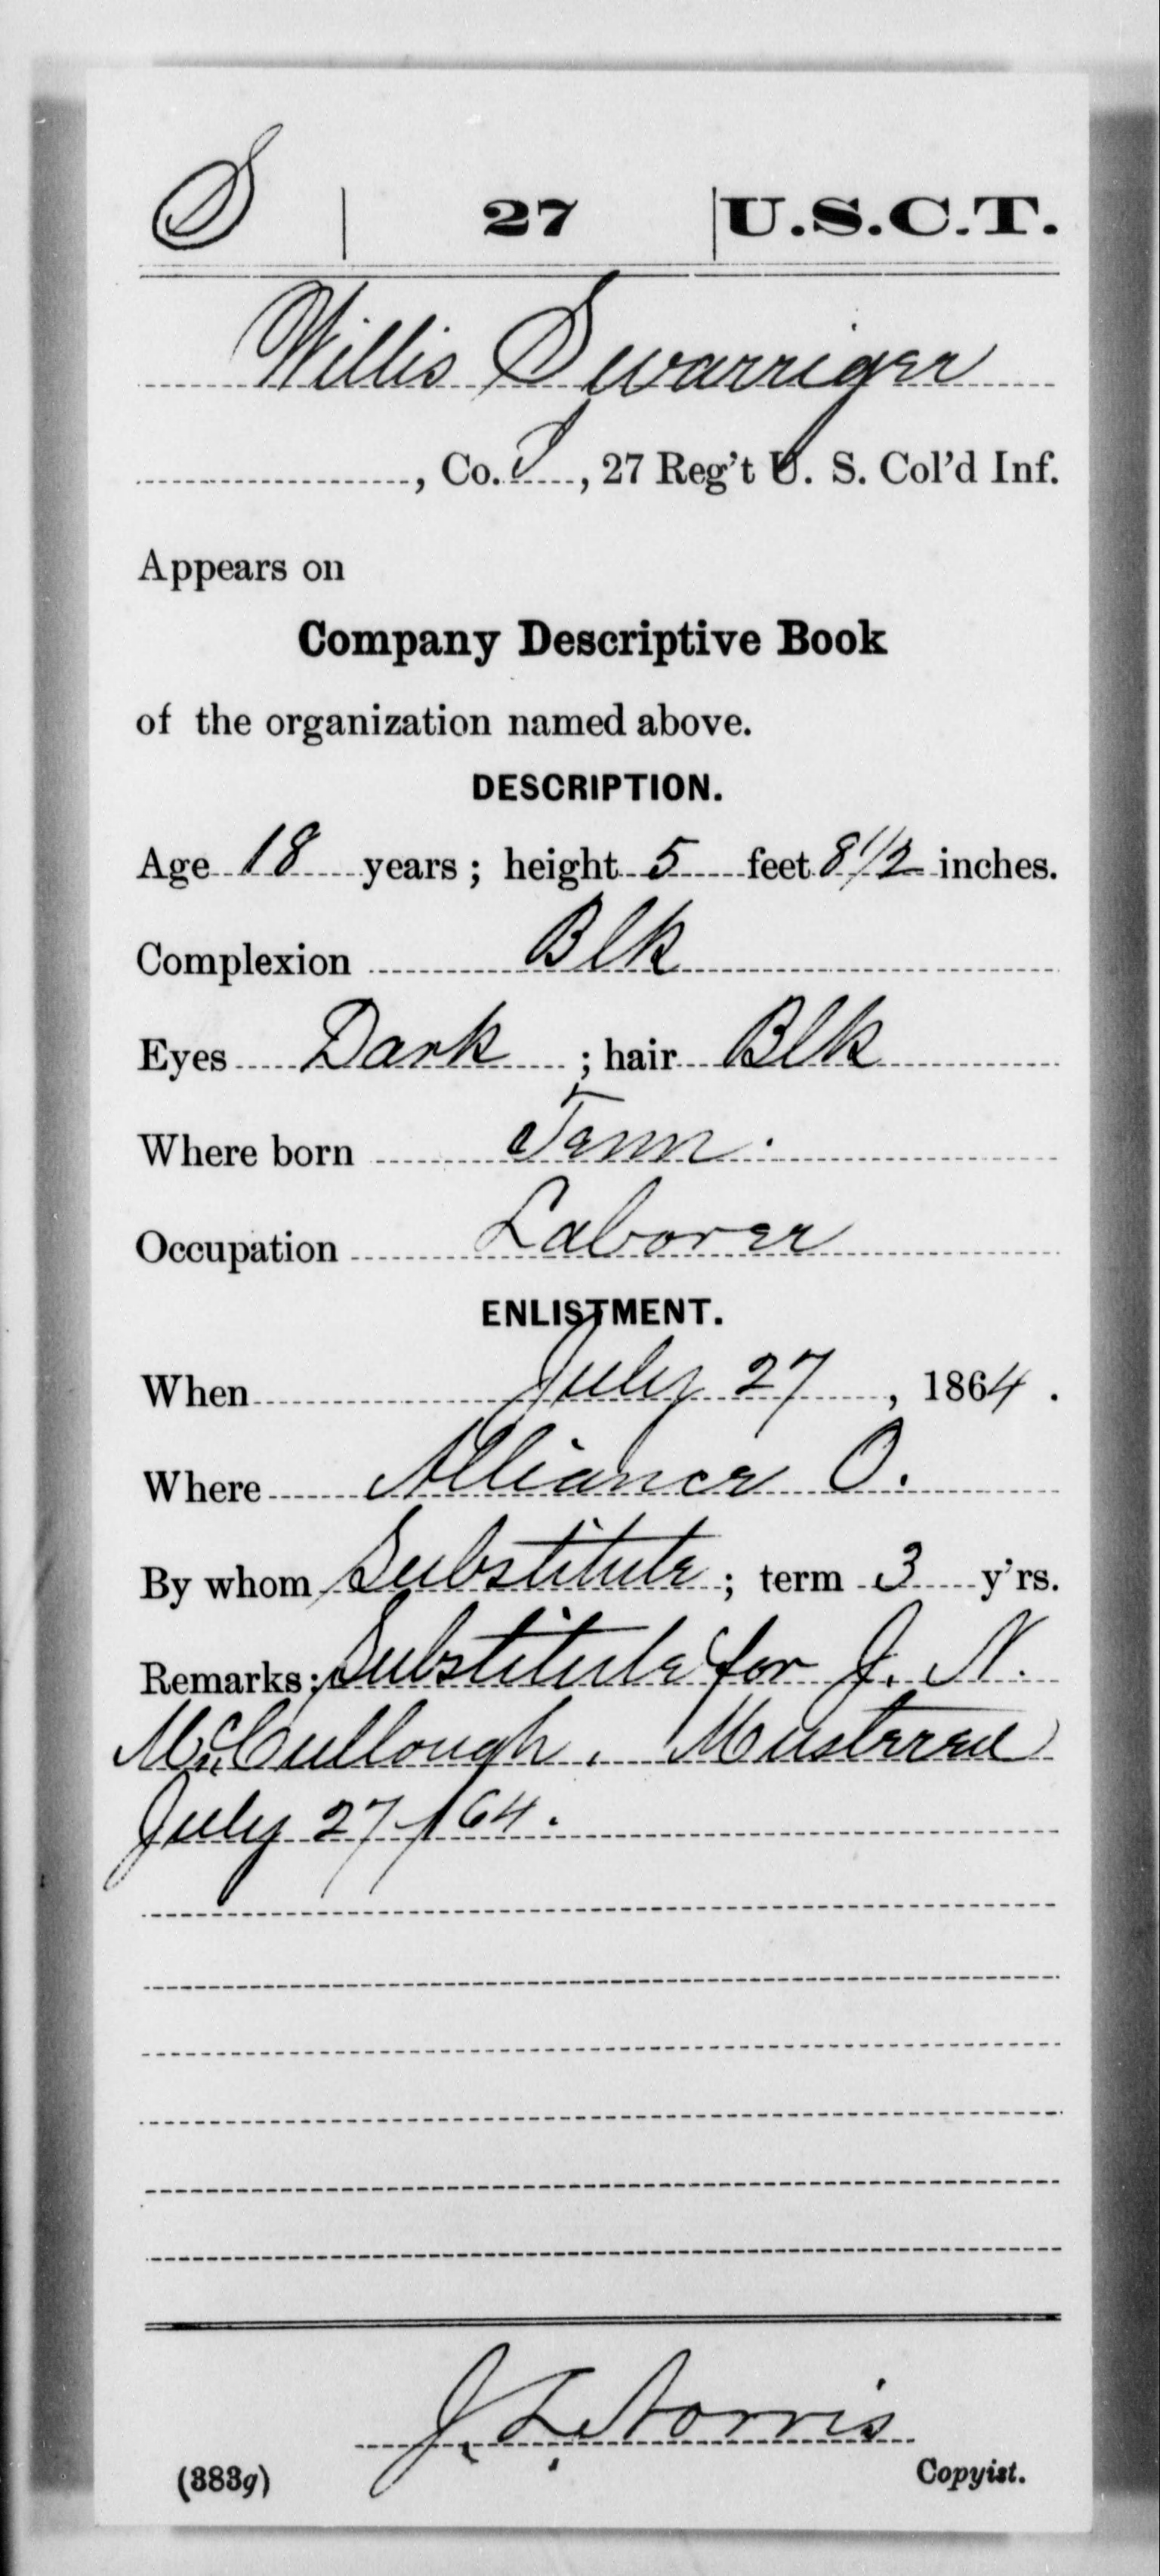 S | 27 | U.S.C.T.
Willis Swarriger
, Co. I, 27 Reg't U. S. Col'd Inf.
Appears on
Company Descriptive Book
of the organization named above.
DESCRIPTION.
Age 18 years; height 5 feet 8 1/2 inches.
Complexion Blk
Eyes Dark; hair Blk
Where born Tenn.
Occupation Laborer
ENLISTMENT.
When July 27, 1864.
Where Alliance O.
By whom Substitute; term 3 y'rs.
Remarks: Substitute for J. N.
McCullough. Mustered
July 27/64.
J. L. Norris
(383g) Copyist.